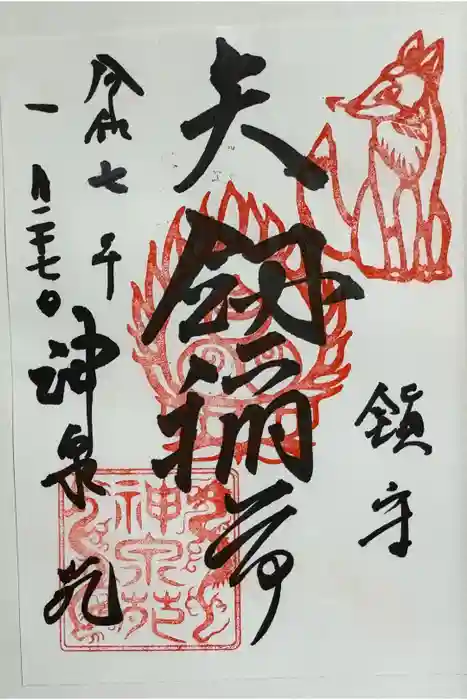 鎮守
矢劔稲荷
令和七年
一月二十七日
神泉苑
神泉苑